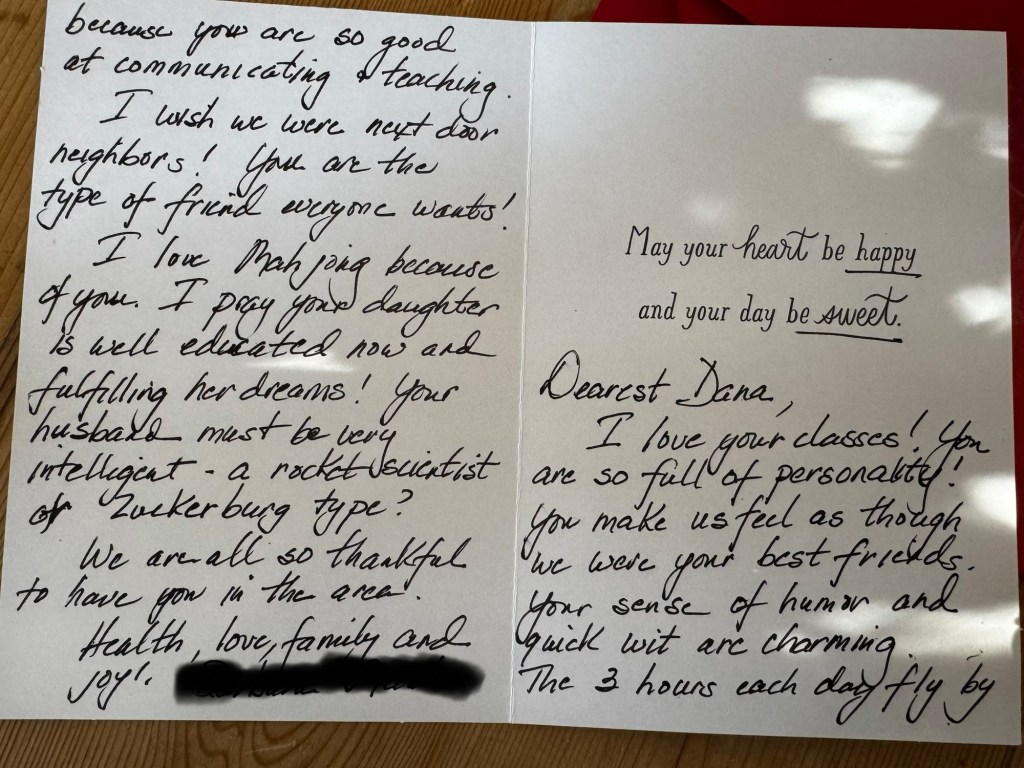 May your heart be happy
and your day be sweet.
Dearest Dana,
I love your classes! You
are so full of personality!
You make us feel as though
we were your best friends.
Your sense of humor and
quick wit are charming.
The 3 hours each day fly by
because you are so good
at communicating & teaching.
I wish we were next door
neighbors! You are the
type of friend everyone wants!
I love Mah jong because
of you. I pray your daughter
is well educated now and
fulfilling her dreams! Your
husband must be very
intelligent - a rocket scientist
or Zuckerburg type?
We are all so thankful
to have you in the area!
Health, love, family and
joy!